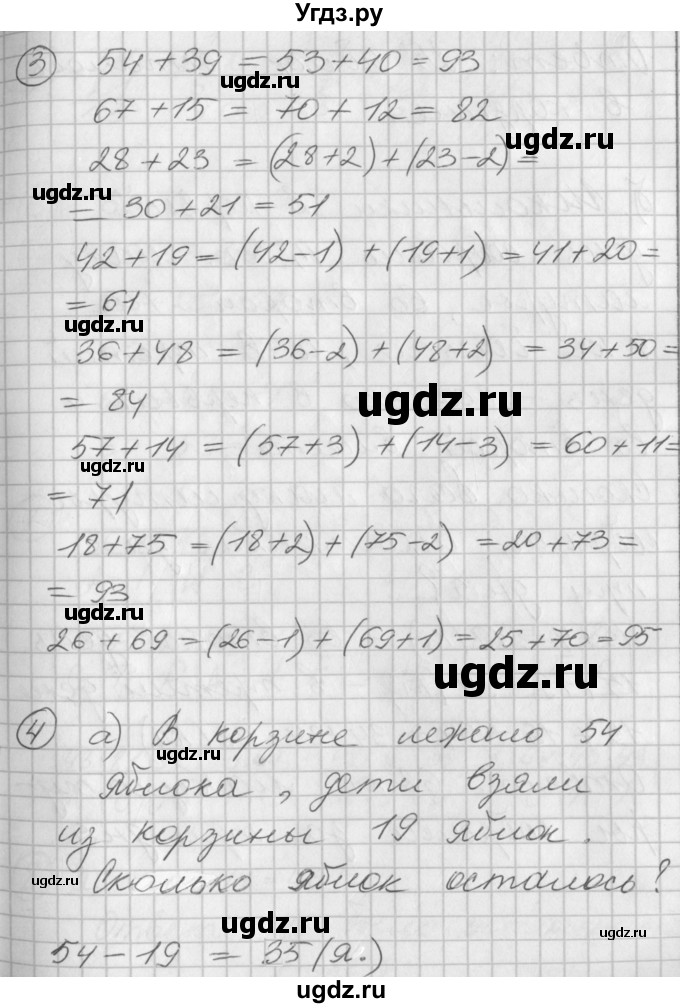 Угдз.ру
③ 54 + 39 = 53 + 40 = 93
ugdz.ru
67 + 15 = 70 + 12 = 82
ugdz.ru
28 + 23 = (28+2) + (23-2) =
ugdz.ru
= 30 + 21 = 51
42 + 19 = (42-1) + (19+1) = 41 + 20 =
= 61
ugdz.ru
36 + 48 = (36-2) + (48+2) = 34 + 50 =
= 84
ugdz.ru
57 + 14 = (57+3) + (14-3) = 60 + 11 =
ugdz.ru
= 71
18 + 75 = (18+2) + (75-2) = 20 + 73 =
= 93
ugdz.ru
26 + 69 = (26-1) + (69+1) = 25 + 70 = 95
ugdz.ru
④ а) В корзине лежало 54
ugdz.ru
яблока, дети взяли
из корзины 19 яблок.
ugdz.ru
Сколько яблок осталось?
ugdz.ru
54 - 19 = 35 (я.)
ugdz.ru
ugdz.ru
Угдз.ру